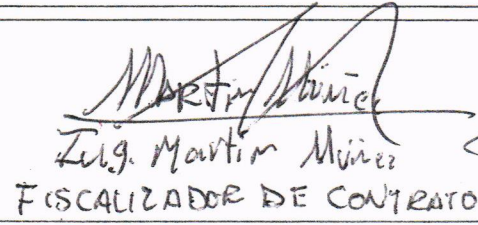 Martin Muñoz
Ing. Martin Muñoz
FISCALIZADOR DE CONTRATO